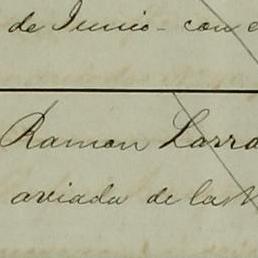 de Junio - con e
Ramon Larra
aviada de la